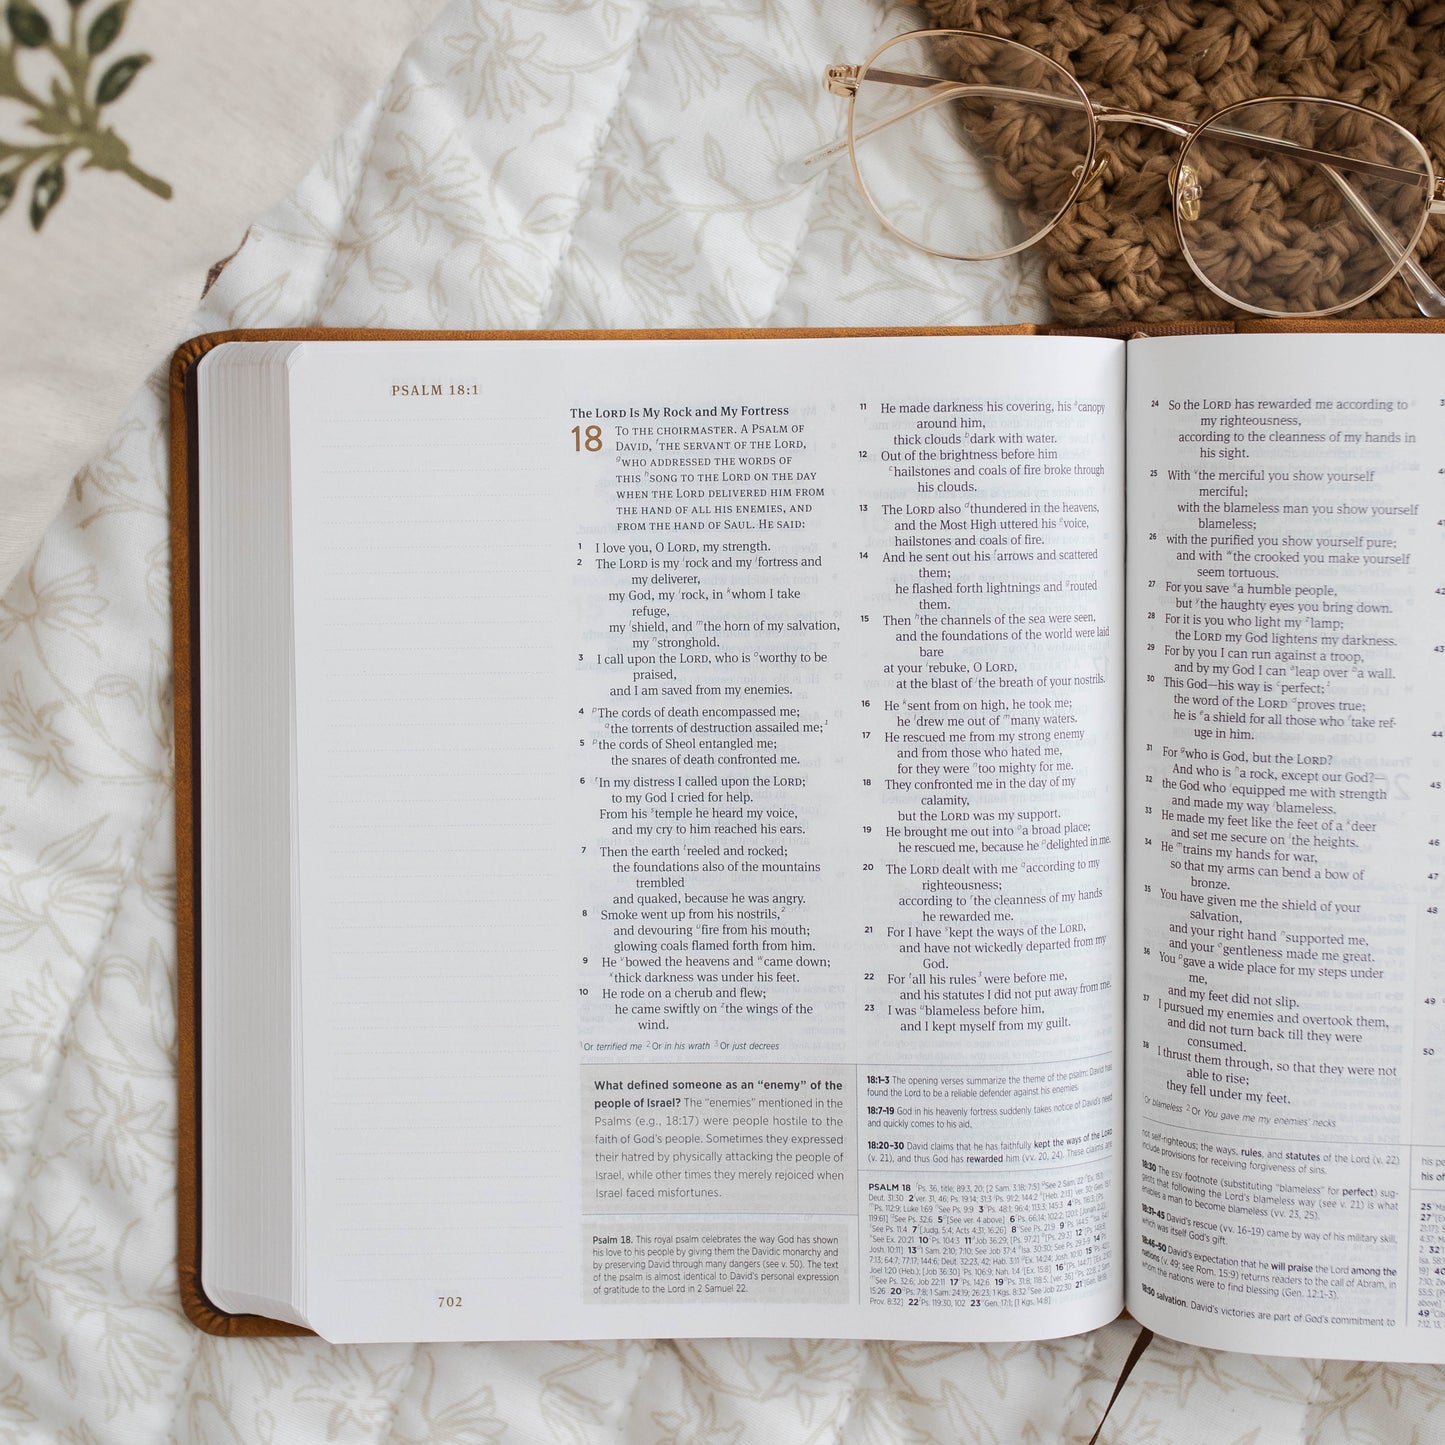 PSALM 18:1
The LORD Is My Rock and My Fortress
18 TO THE CHOIRMASTER. A PSALM OF
DAVID, fTHE SERVANT OF THE LORD,
gWHO ADDRESSED THE WORDS OF
THIS hSONG TO THE LORD ON THE DAY
WHEN THE LORD DELIVERED HIM FROM
THE HAND OF ALL HIS ENEMIES, AND
FROM THE HAND OF SAUL. HE SAID:
1 I love you, O LORD, my strength.
2 The LORD is my irock and my jfortress and
my deliverer,
my God, my irock, in kwhom I take
refuge,
my lshield, and mthe horn of my salvation,
my nstronghold.
3 I call upon the LORD, who is oworthy to be
praised,
and I am saved from my enemies.
4 pThe cords of death encompassed me;
qthe torrents of destruction assailed me;1
5 pthe cords of Sheol entangled me;
the snares of death confronted me.
6 rIn my distress I called upon the LORD;
to my God I cried for help.
From his stemple he heard my voice,
and my cry to him reached his ears.
7 Then the earth treeled and rocked;
the foundations also of the mountains
trembled
and quaked, because he was angry.
8 Smoke went up from his nostrils,2
and devouring ufire from his mouth;
glowing coals flamed forth from him.
9 He vbowed the heavens and wcame down;
xthick darkness was under his feet.
10 He rode on a cherub and flew;
he came swiftly on zthe wings of the
wind.
1Or terrified me 2Or in his wrath 3Or just decrees
11 He made darkness his covering, his acanopy
around him,
thick clouds bdark with water.
12 Out of the brightness before him
chailstones and coals of fire broke through
his clouds.
13 The LORD also dthundered in the heavens,
and the Most High uttered his evoice,
hailstones and coals of fire.
14 And he sent out his farrows and scattered
them;
he flashed forth lightnings and grouted
them.
15 Then hthe channels of the sea were seen,
and the foundations of the world were laid
bare
at your irebuke, O LORD,
at the blast of jthe breath of your nostrils.
16 He ksent from on high, he took me;
he ldrew me out of mmany waters.
17 He rescued me from my strong enemy
and from those who hated me,
for they were ntoo mighty for me.
18 They confronted me in the day of my
calamity,
but the LORD was my support.
19 He brought me out into oa broad place;
he rescued me, because he pdelighted in me.
20 The LORD dealt with me qaccording to my
righteousness;
according to rthe cleanness of my hands
he rewarded me.
21 For I have skept the ways of the LORD,
and have not wickedly departed from my
God.
22 For tall his rules3 were before me,
and his statutes I did not put away from me.
23 I was ublameless before him,
and I kept myself from my guilt.
What defined someone as an “enemy” of the
people of Israel? The “enemies” mentioned in the
Psalms (e.g., 18:17) were people hostile to the
faith of God’s people. Sometimes they expressed
their hatred by physically attacking the people of
Israel, while other times they merely rejoiced when
Israel faced misfortunes.
Psalm 18. This royal psalm celebrates the way God has shown
his love to his people by giving them the Davidic monarchy and
by preserving David through many dangers (see v. 50). The text
of the psalm is almost identical to David’s personal expression
of gratitude to the Lord in 2 Samuel 22.
18:1–3 The opening verses summarize the theme of the psalm: David has
found the Lord to be a reliable defender against his enemies.
18:7–19 God in his heavenly fortress suddenly takes notice of David’s need
and quickly comes to his aid.
18:20–30 David claims that he has faithfully kept the ways of the LORD
(v. 21), and thus God has rewarded him (vv. 20, 24). These claims are
PSALM 18
702
24 So the LORD has rewarded me according to
my righteousness,
according to the cleanness of my hands in
his sight.
25 With vthe merciful you show yourself
merciful;
with the blameless man you show yourself
blameless;
26 with the purified you show yourself pure;
and with wthe crooked you make yourself
seem tortuous.
27 For you save xa humble people,
but ythe haughty eyes you bring down.
28 For it is you who light my zlamp;
the LORD my God lightens my darkness.
29 For by you I can run against a troop,
and by my God I can aleap over ba wall.
30 This God—his way is cperfect;1
the word of the LORD dproves true;
he is ea shield for all those who ftake ref-
uge in him.
31 For gwho is God, but the LORD?
And who is ha rock, except our God?—
32 the God who iequipped me with strength
and made my way jblameless.
33 He made my feet like the feet of a kdeer
and set me secure on lthe heights.
34 He mtrains my hands for war,
so that my arms can bend a bow of
bronze.
35 You have given me the shield of your
salvation,
and your right hand nsupported me,
and your ogentleness made me great.
36 You pgave a wide place for my steps under
me,
and my feet did not slip.
37 I pursued my enemies and overtook them,
and did not turn back till they were
consumed.
38 I thrust them through, so that they were not
able to rise;
they fell under my feet.
1Or blameless 2Or You gave me my enemies’ necks
not self-righteous; the ways, rules, and statutes of the Lord (v. 22)
include provisions for receiving forgiveness of sins.
18:30 The ESV footnote (substituting “blameless” for perfect) sug-
gests that following the Lord’s blameless way (see v. 21) is what
enables a man to become blameless (vv. 23, 25).
18:31–45 David’s rescue (vv. 16–19) came by way of his military skill,
which was itself God’s gift.
18:46–50 David’s expectation that he will praise the LORD among the
nations (v. 49; see Rom. 15:9) returns readers to the call of Abram, in
whom the nations were to find blessing (Gen. 12:1–3).
18:50 salvation. David’s victories are part of God’s commitment to